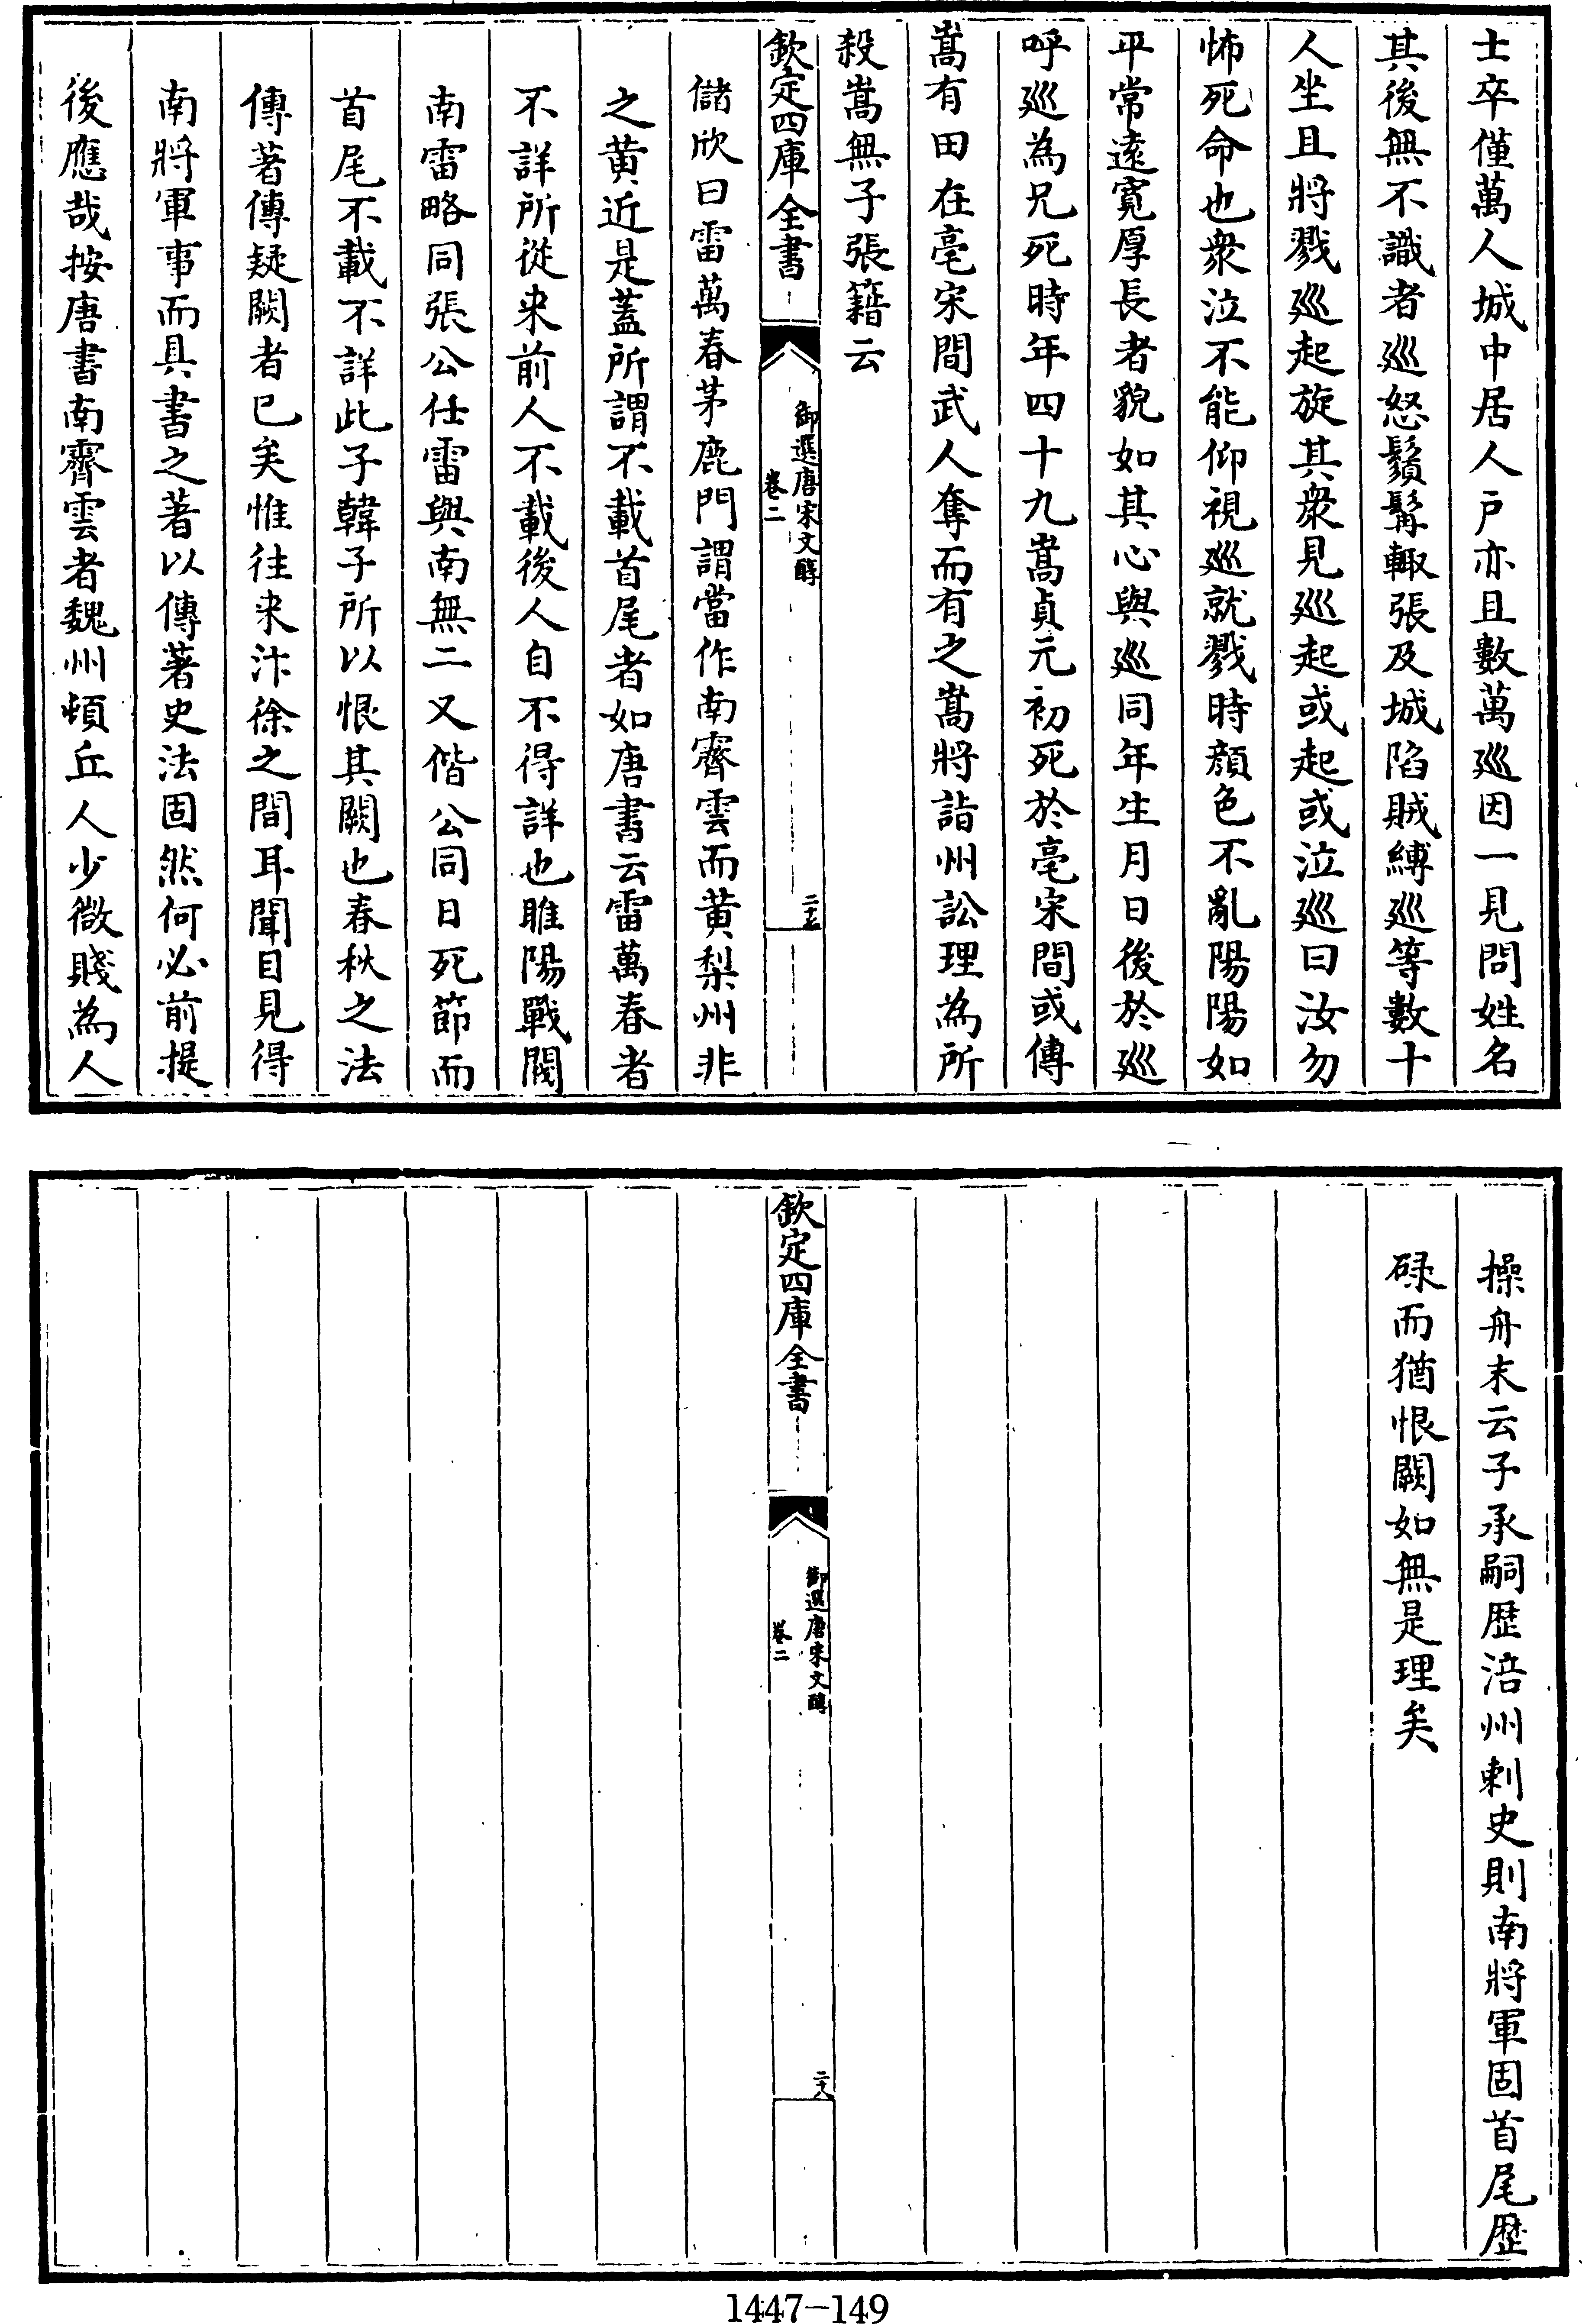 士卒僅萬人城中居人户亦且數萬廵因一見問姓名
其後無不識者廵怒鬚髯輙張及城陷賊縛廵等數十
人坐且將戮廵起旋其衆見廵起或起或泣廵曰汝勿
怖死命也衆泣不能仰視廵就戮時顔色不亂陽陽如
平常遠寛厚長者貌如其心與廵同年生月日後於廵
呼廵為兄死時年四十九嵩貞元初死於亳宋間或傳
嵩有田在亳宋間武人奪而有之嵩將詣州訟理為所
殺嵩無子張籍云
欽定四庫全書
御選唐宋文醇
卷二
二十七
儲欣曰雷萬春茅鹿門謂當作南霽雲而黄梨州非
之黄近是蓋所謂不載首尾者如唐書云雷萬春者
不詳所從来前人不載後人自不得詳也睢陽戰閥
南雷略同張公仕雷與南無二又偕公同日死節而
首尾不載不詳此子韓子所以恨其闕也春秋之法
傳著傳疑闕者已矣惟往来汴徐之間耳聞目見得
南將軍事而具書之著以傳著史法固然何必前提
後應哉按唐書南霽雲者魏州頓丘人少微賤為人
操舟末云子承嗣歴涪州刺史則南將軍固首尾歴
碌而猶恨闕如無是理矣
欽定四庫全書
御選唐宋文醇
卷二
二十八
1447-149